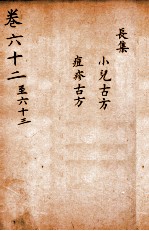 長集
小兒古方
痘疹古方
卷六十二至六十三